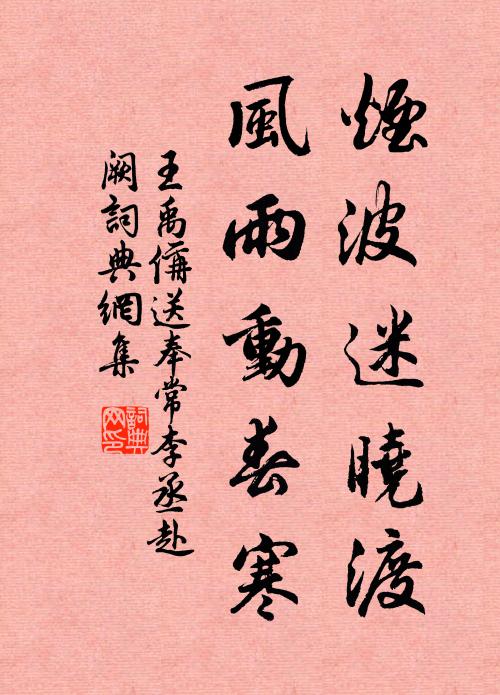 煙波迷曉渡
風雨動春寒
王禹偁送奉常李丞赴
闕詞典網集
詞典
网印